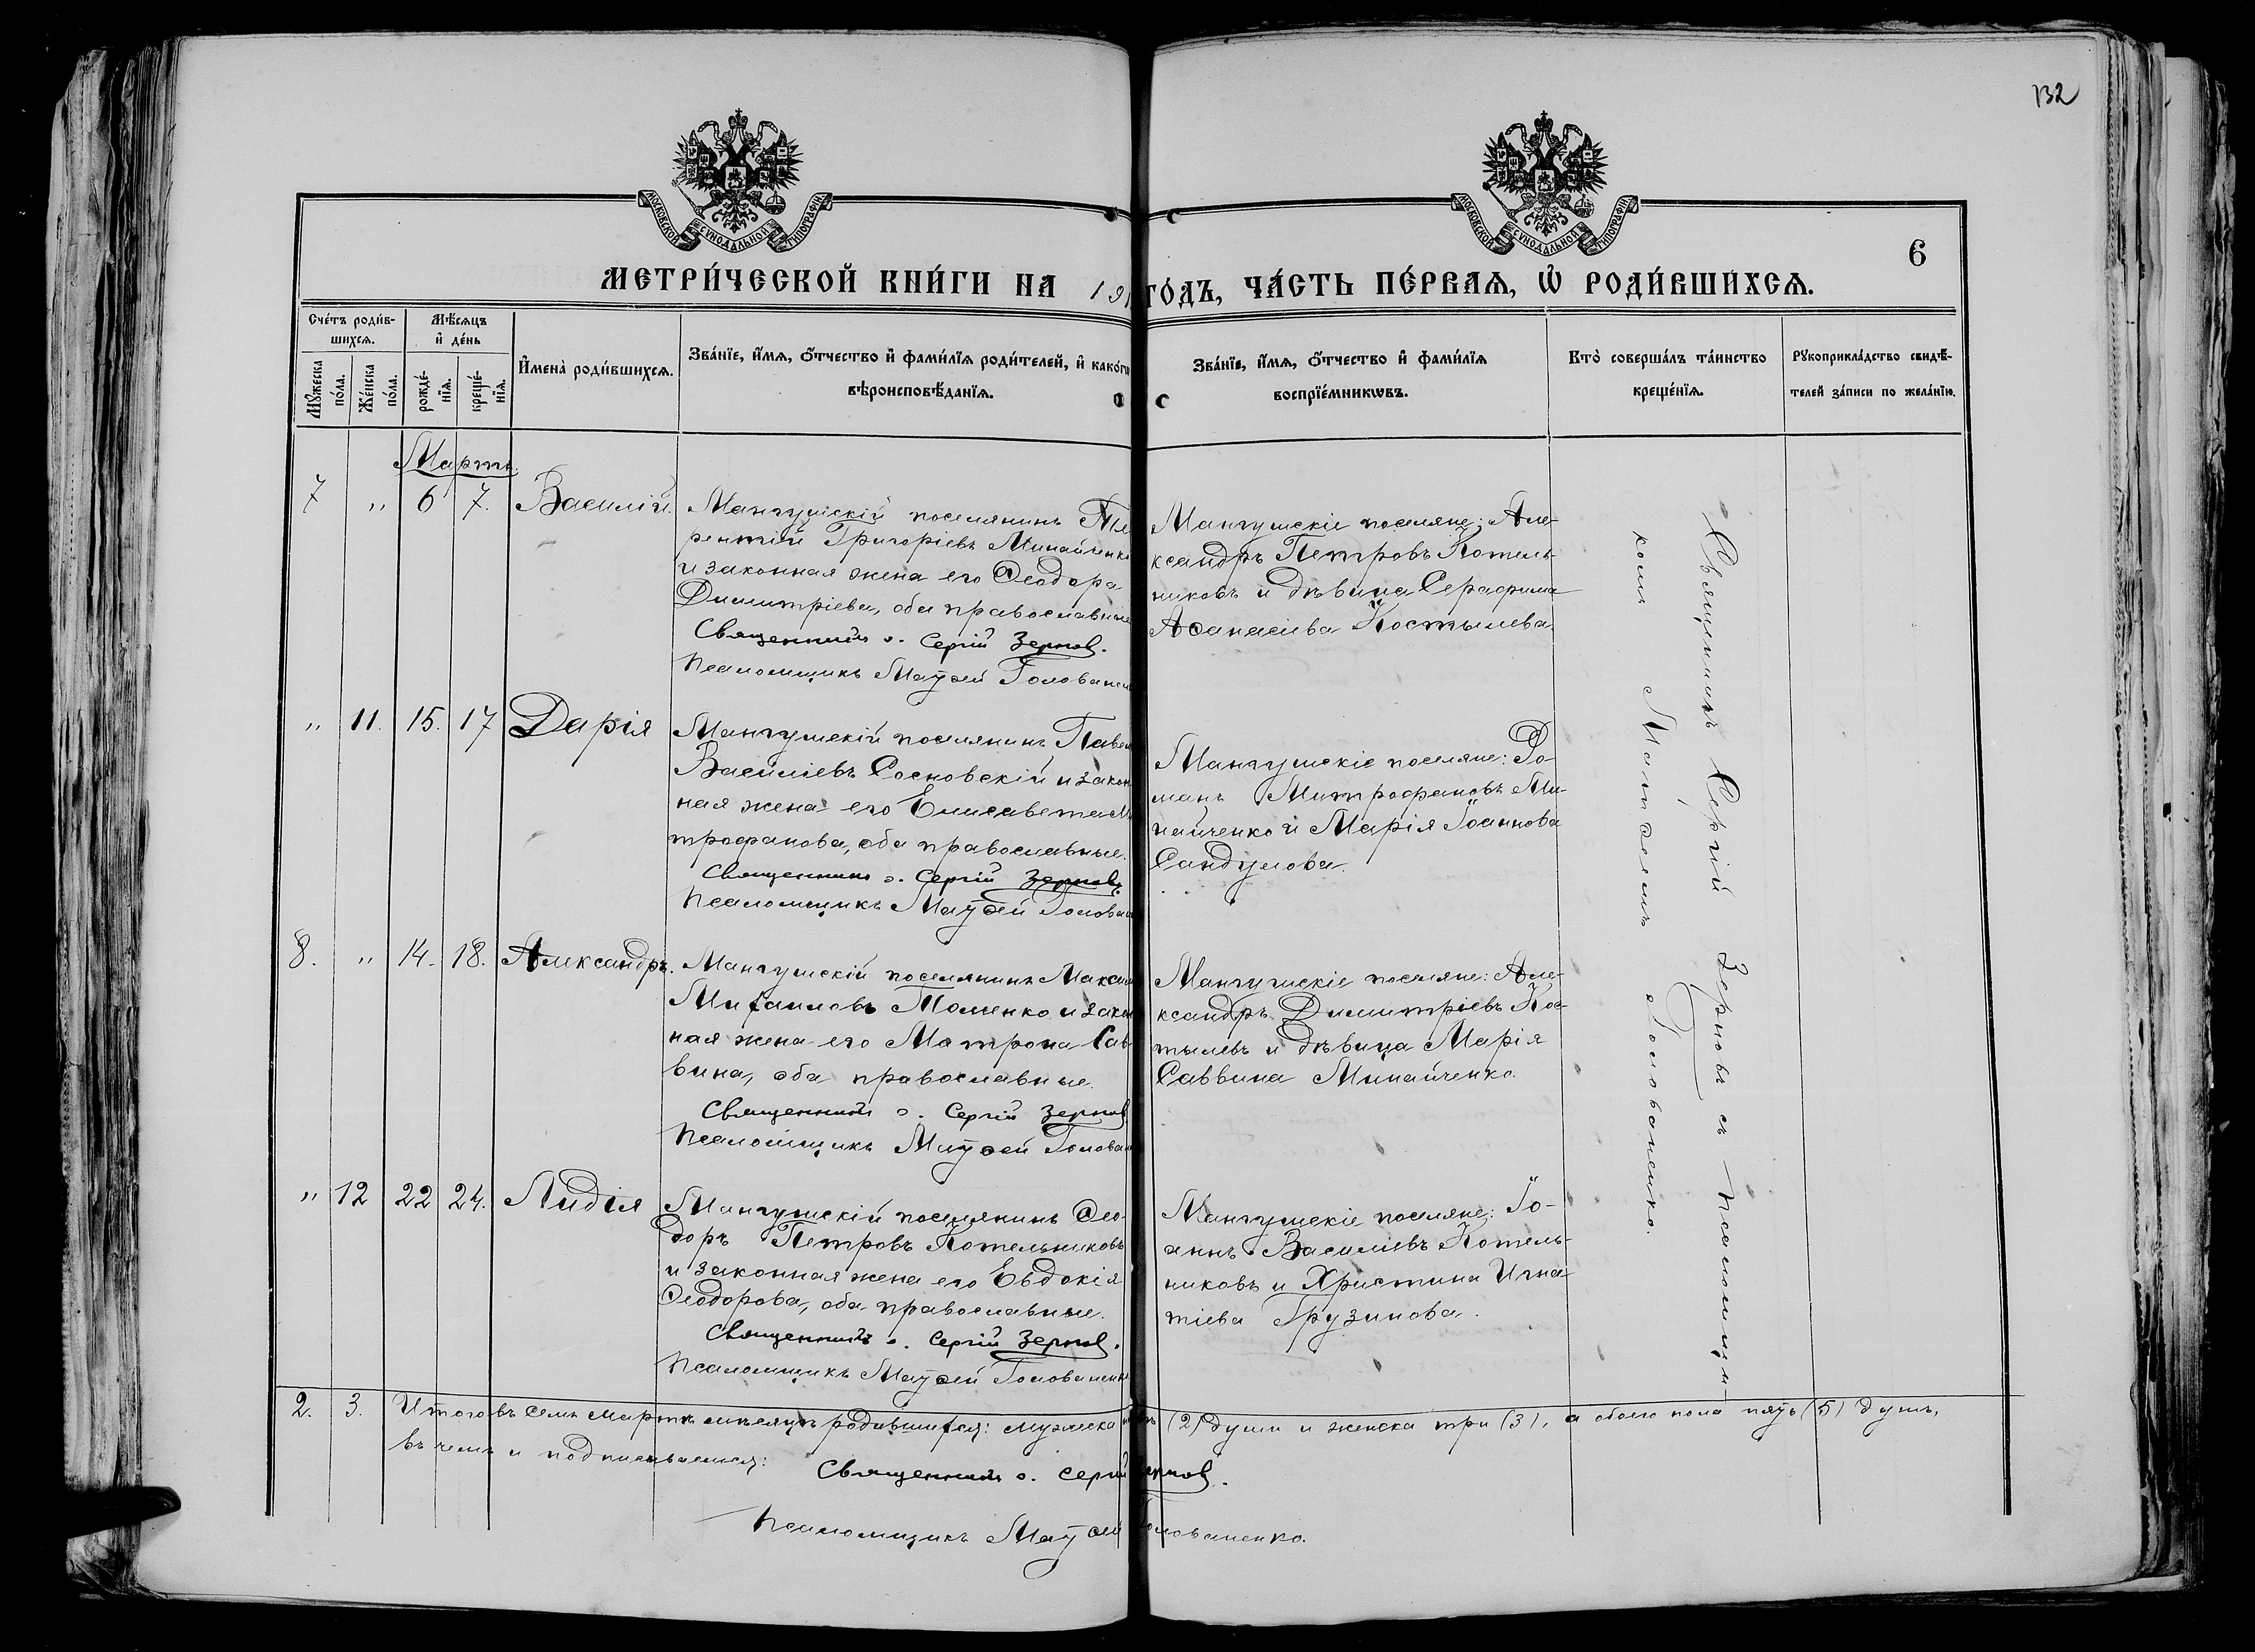 132
МОСКОВСКОЙ СѴНОДАЛЬНОЙ ТИПОГРАФІИ
МОСКОВСКОЙ СѴНОДАЛЬНОЙ ТИПОГРАФІИ
6
МЕТРИ́ЧЕСКОЙ КНИ́ГИ НА 191 ГО́ДЪ, ЧА́СТЬ ПЕ́РВАѦ, Ѡ҆ РОДИ́ВШИХСѦ.
Сче́тъ роди́в-
шихсѧ.
Мꙋжеска по́ла.
Же́нска по́ла.
Мѣ́сѧцъ
и҆ де́нь
рожде́-
нїѧ.
креще́-
нїѧ.
И҆мена̀ роди́вшихсѧ.
Зва́нїе, и҆́мѧ, ѻ҆́тчество и҆ фами́лїѧ роди́телей, и҆ како́гѡ
вѣроисповѣ́данїѧ.
Зва́нїе, и҆́мѧ, ѻ҆́тчество и҆ фами́лїѧ
воспрїе́мникѡвъ.
Кто̀ соверша́лъ та́инство
креще́нїѧ.
Рꙋкоприкла́дство свидѣ́-
телей за́писи по жела́нїю.
Мартъ.
7 " 6 7. Василій.
Мангушскій поселянинъ Те
рентій Григоріевъ Минайченко
и законная жена его Ѳеодора
Димитріева, оба православные
Священникъ о. Сергій Зерновъ.
Псаломщикъ Матѳей Голованен
Мангушскіе поселяне: Але-
ксандръ Петровъ Котель-
никовъ и дѣвица Серафима
Аѳанасіева Костылева.
" 11. 15. 17 Дарія
Мангушскій поселянинъ Павел
Василіевъ Сосновскій и закон
ная жена его Елисавета М
трофанова, оба православные.
Священникъ о. Сергій Зерновъ.
Псаломщикъ Матѳей Голован
Мангушскіе поселяне: Ро-
манъ Митрофановъ Ми-
найченко и Марія Іоаннова
Сандулова.
8. " 14. 18. Александръ.
Мангушскій поселянинъ Максим
Михаиловъ Томенко и закон
ная жена его Матрона Сав-
вина, оба православные.
Священникъ о. Сергій Зернов
Псаломщикъ Матѳей Голован
Мангушскіе поселяне: Але-
ксандръ Димитріевъ Кос-
тылевъ и дѣвица Марія
Саввина Минайченко.
" 12 22 24. Лидія
Мангушскій поселянинъ Ѳео-
доръ Петровъ Котельниковъ
и законная жена его Евдокія
Ѳеодорова, оба православные.
Священникъ о. Сергій Зерновъ.
Псаломщикъ Матѳей Голованенк
Мангушскіе поселяне: Іо-
аннъ Василіевъ Котель-
никовъ и Христина Игна-
тіева Грузинова.
Священникъ Сергій Зерновъ съ псаломщи-
комъ Матѳеемъ Голованенко.
2. 3. Итого въ семъ мартѣ мѣсяцѣ родившихся: мужеска (2) души и женска три (3), а обоего пола пять (5) душъ,
въ чемъ и подписываемся:
Священникъ о. Сергі ерновъ.
Псаломщикъ Матѳей олованенко.